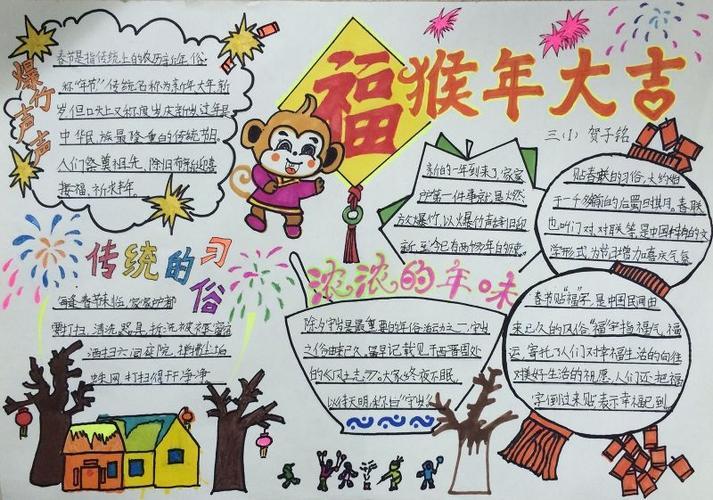 福 猴年大吉
三.(1) 贺子铭
爆竹声声
春节是指传统上的农历新年,俗
称“年节”传统名称为新年、大年、新
岁,但口头上又称度岁、庆新岁、过年是
中华民族最隆重的传统节日。
人们祭奠祖先、除旧布新、迎禧
接福、祈求丰年。
新的一年到来了,家家
第一件事就是燃
放爆竹,以爆竹声辞旧迎
新,至今已有两千多年的
贴春联的习俗,大约始
于一千多年前的后蜀 春联
也叫门对、对联等,是中国特有的文
学形式,为节日增加喜庆气氛
传统的习俗
每逢春节来临,家家户户都
要打扫、清洗器具、拆洗被褥窗
洒扫六闾庭院,掸拂尘垢
蛛网,打扫得干干净净
浓浓的年味
除夕守岁是最重要的年俗活动之一,守岁
之俗由来已久。最早记载见于西晋周处
的《风土志》。大家终夜不眠,
以待天明,称曰“守岁”。
春节贴“福”字,是中国民间由
来已久的风俗“福”字指福气、福
运,寄托了人们对幸福生活的向往
对美好生活的祝愿,人们还把福
字倒过来贴表示幸福已到